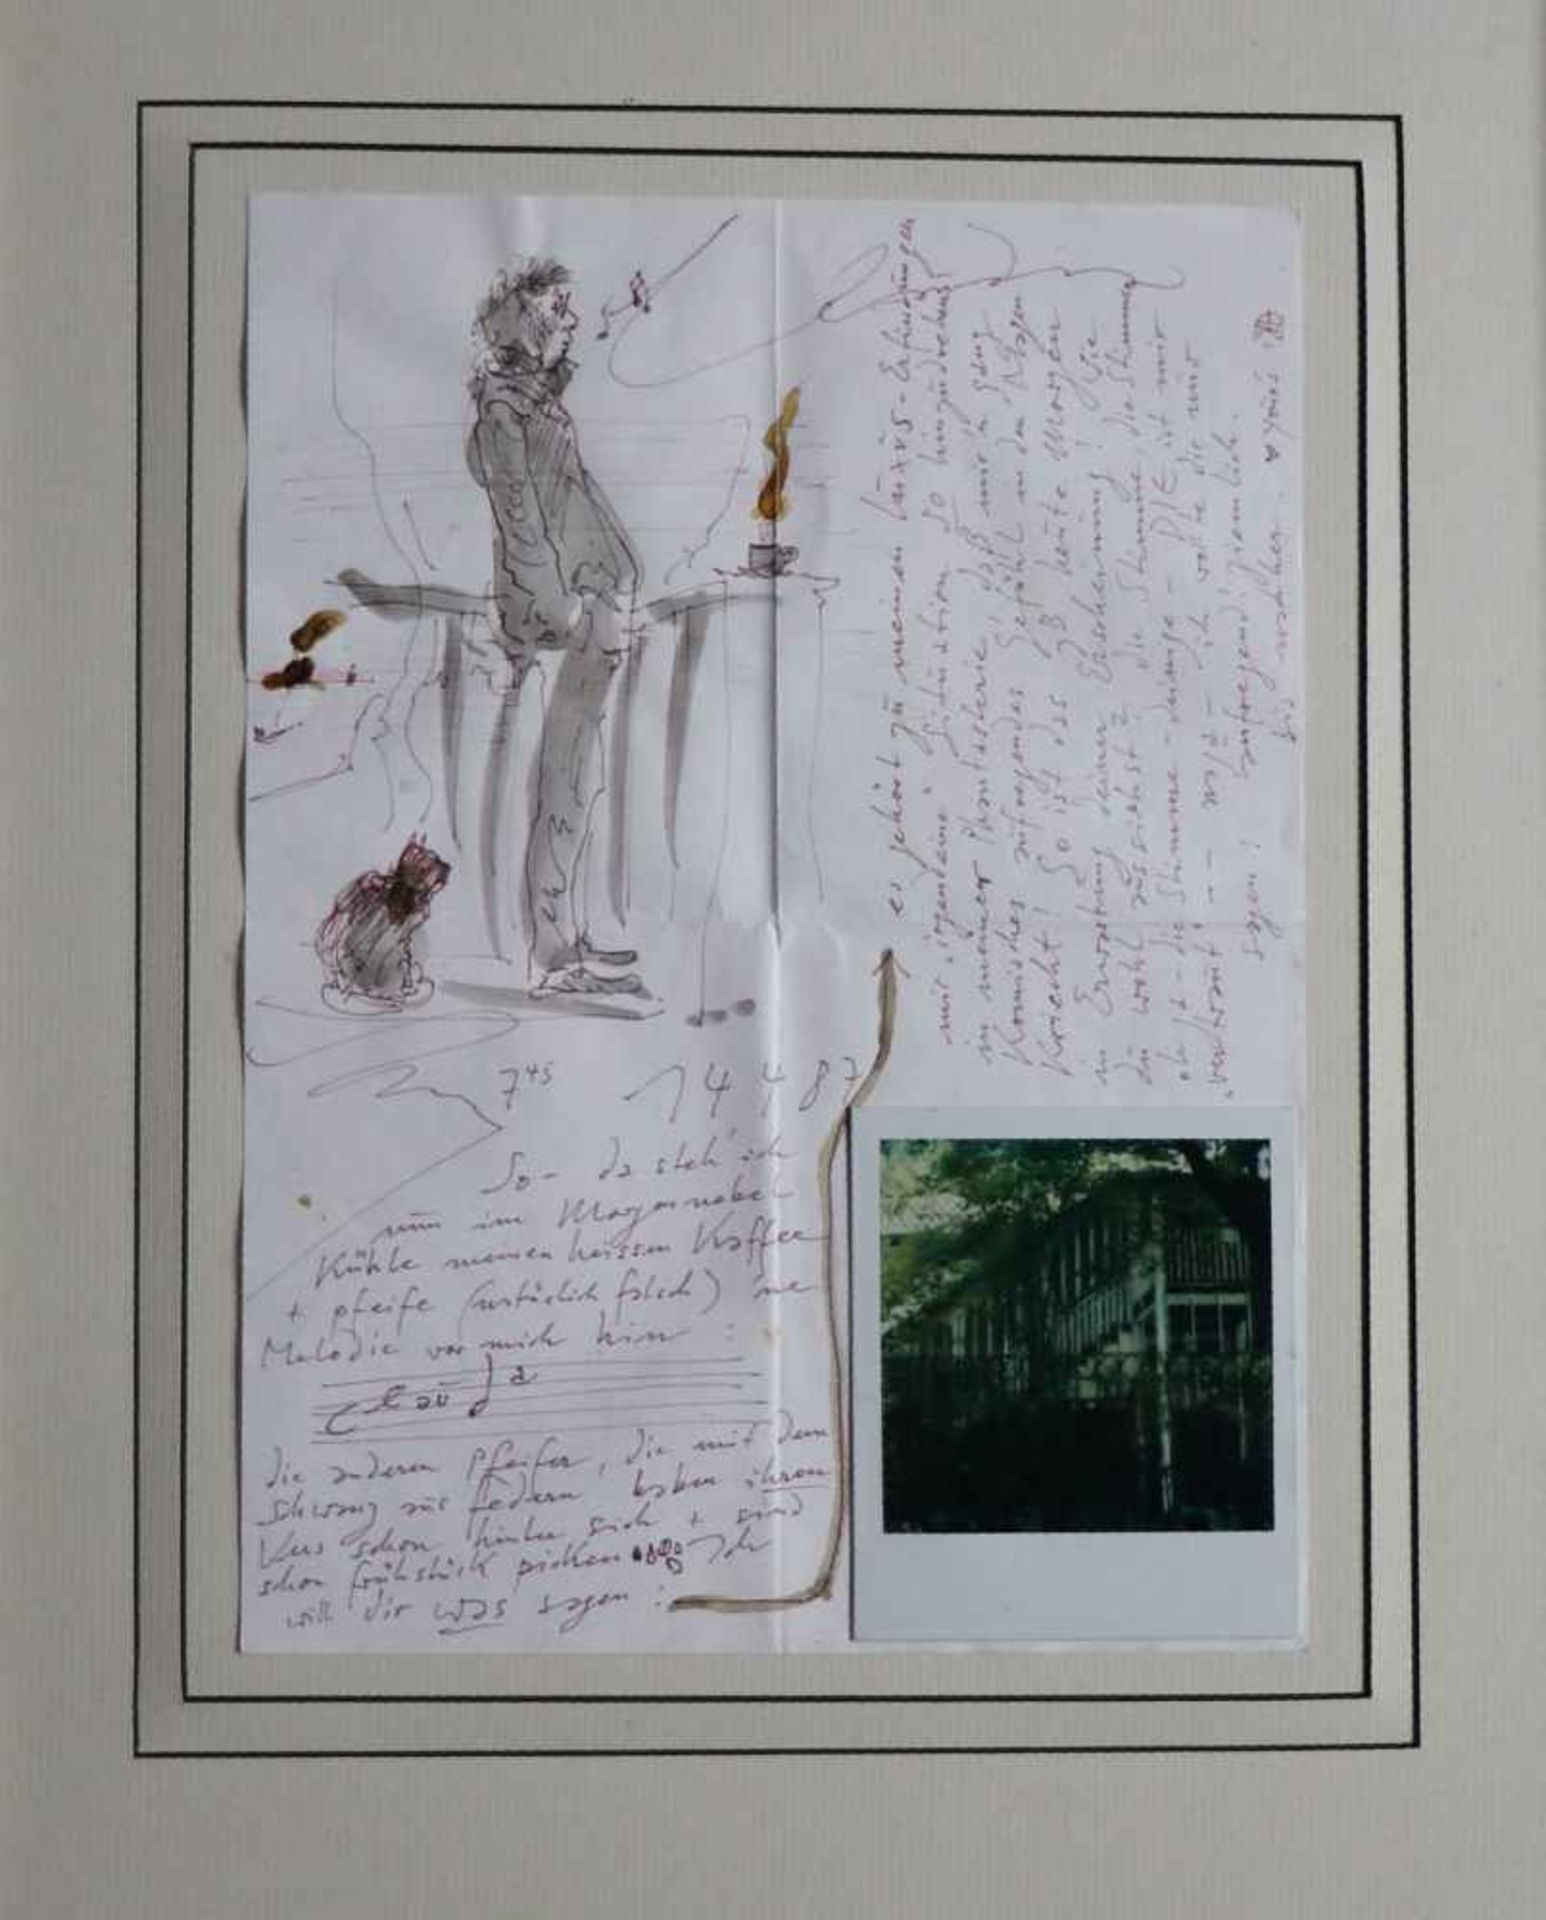 7 45 14 4 87
So - da steh' ich
nun im Morgennebel
Kühle meinen heissen Kaffee
+ pfeife (natürlich falsch) 'ne
Melodie vor mich hin :
C l au d a
die anderen Pfeifer, die mit dem
Schwanz aus Federn haben ihren
schon hinter sich + sind
schon frühstück picken Ich
will dir was sagen :
es gehört zu meinen Luxus-Erfindungen
mir "irgendeine" Situation so hinzudrehen,
in meiner Phantasterie, daß mir'n ganz
Komisches aufregendes Gefühl in den Magen
Kriecht! So ist das zB heute Morgen
in Erwartung deiner Erscheinung! Wie
du wohl aussiehst? die Stimme, die Stimmung
die Stimme - DIE ist mir
"vertraut" - ich wollte dir nur
sagen: aufregend! ziemlich.
bis nachher.